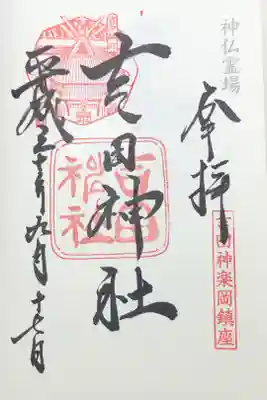 神仏霊場
奉拝
吉田神楽岡鎮座
吉田神社
吉田神社
平成三十年九月十七日